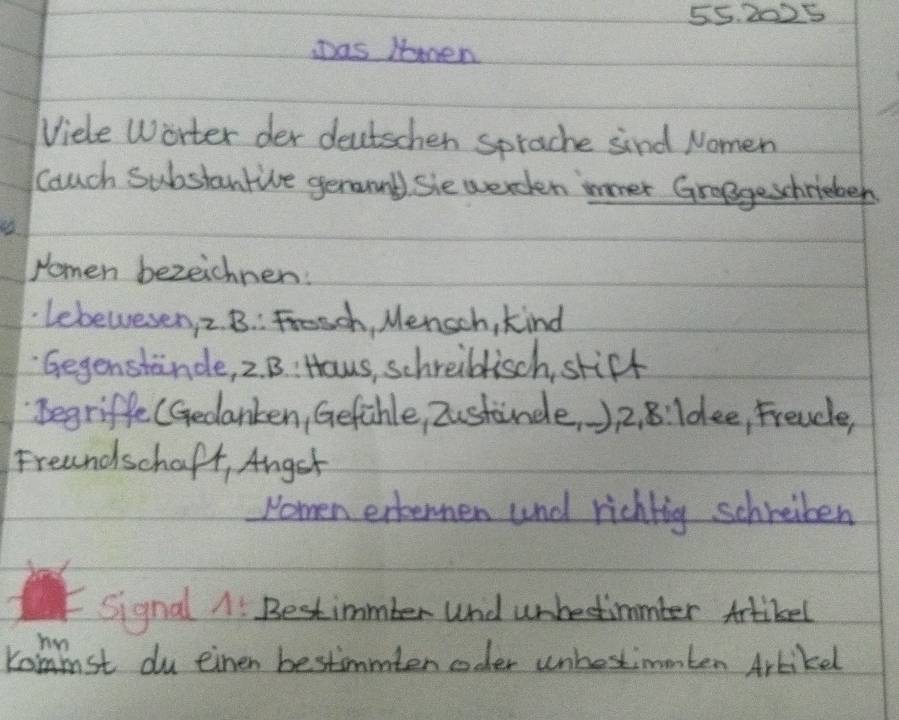 5.5.2025
Das Nomen
Viele Wörter der deutschen Sprache sind Nomen
(auch Substantive genannt). Sie werden immer Großgeschrieben.
Nomen bezeichnen:
· Lebewesen, z.B.: Frosch, Mensch, Kind
· Gegenstände, z.B.: Haus, schreibtisch, stift
· Begriffe (Gedanken, Gefühle, Zustände, ...), z.B: Idee, Freude,
Freundschaft, Angst
Nomen erkennen und richtig schreiben
Signal 1: Bestimmter und unbestimmter Artikel
nn
Kommst du einen bestimmten oder unbestimmten Artikel